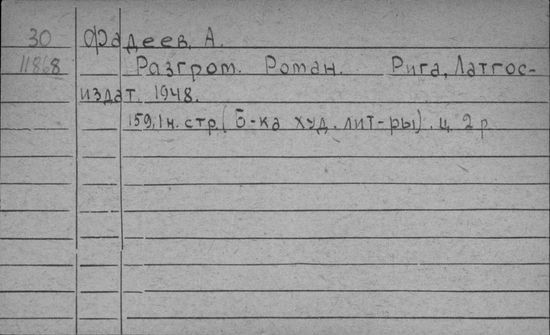 30 Фадеев, А.
11868 Разгром. Роман. Рига, Латгос-
издат, 1948.
159, 1 н. стр. (Б-ка худ. лит-ры). ц. 2 р